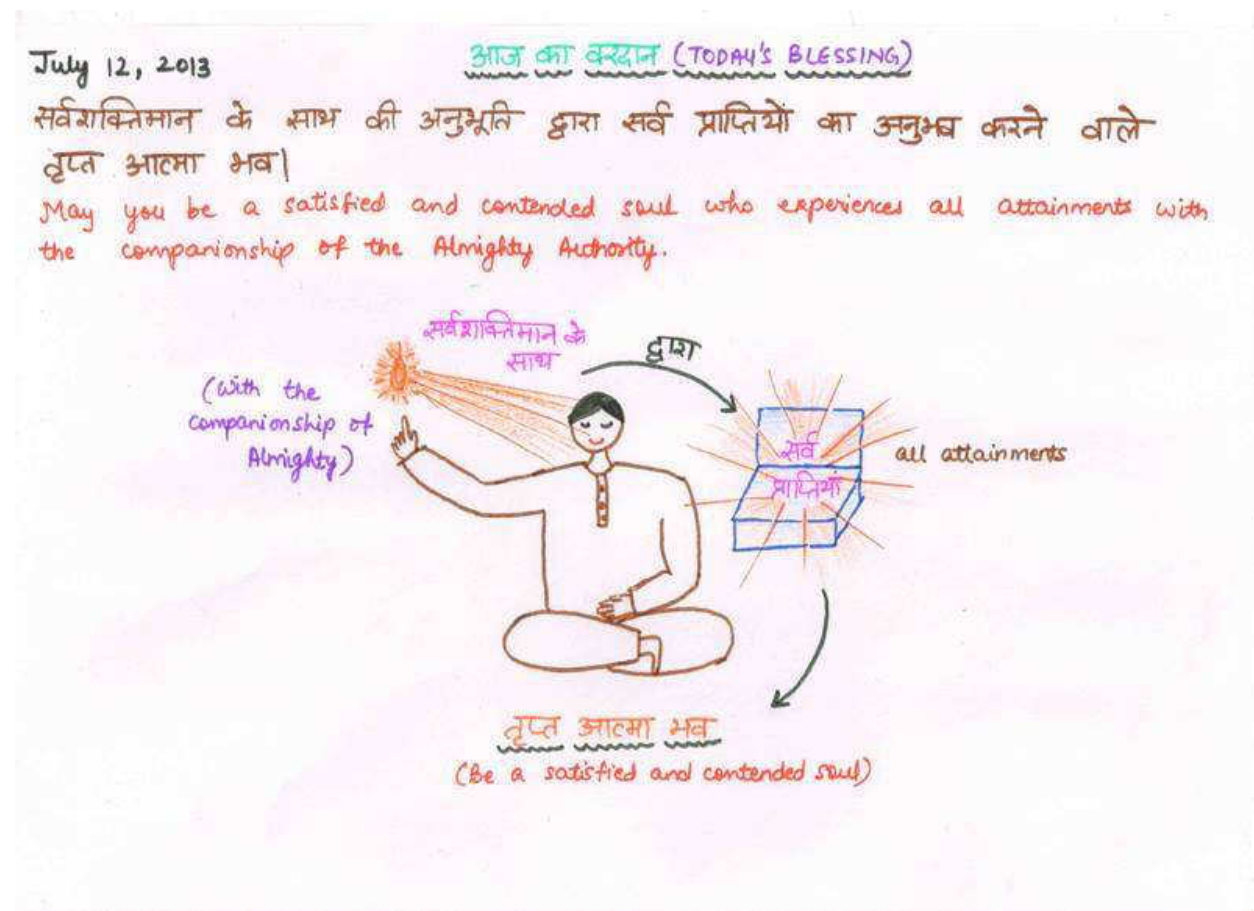 July 12, 2013
आज का वरदान (TODAY'S BLESSING)
सर्वशक्तिमान के साथ की अनुभूति द्वारा सर्व प्राप्तियों का अनुभव करने वाले
तृप्त आत्मा भव|
May you be a satisfied and contended soul who experiences all attainments with
the companionship of the Almighty Authority.
सर्वशक्तिमान के
साथ
द्वारा
(With the
companionship of
Almighty)
सर्व
प्राप्तियाँ
all attainments
तृप्त आत्मा भव
(Be a satisfied and contended soul)